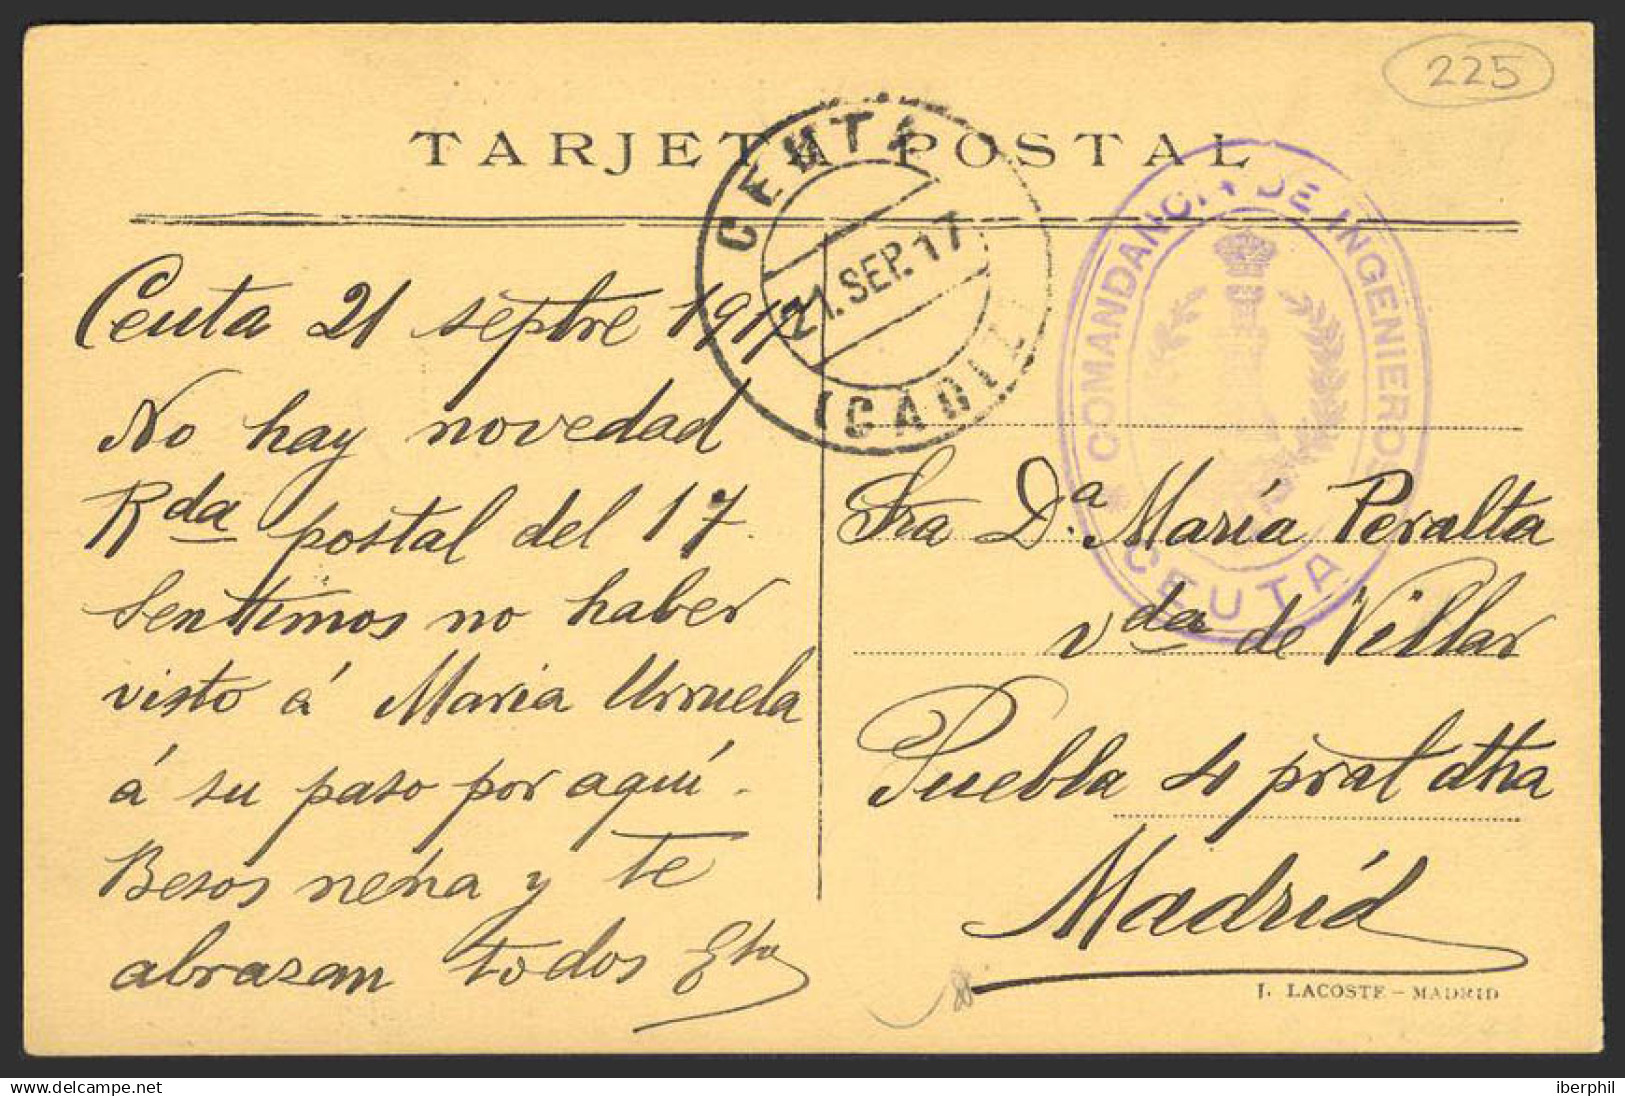 225
TARJETA POSTAL
CEUTA
21.SEP.17
(CADIZ)
COMANDANCIA DE INGENIEROS
CEUTA
Ceuta 21 septre 1917
No hay novedad
Rda postal del 17.
Sentimos no haber
visto á Maria Urruela
á su paso por aquí.
Besos nena y te
abrazan todos
Sra D.ª María Peralta
vda de Villar
Puebla 4 pral dtha
Madrid
J. LACOSTE - MADRID
iberphil